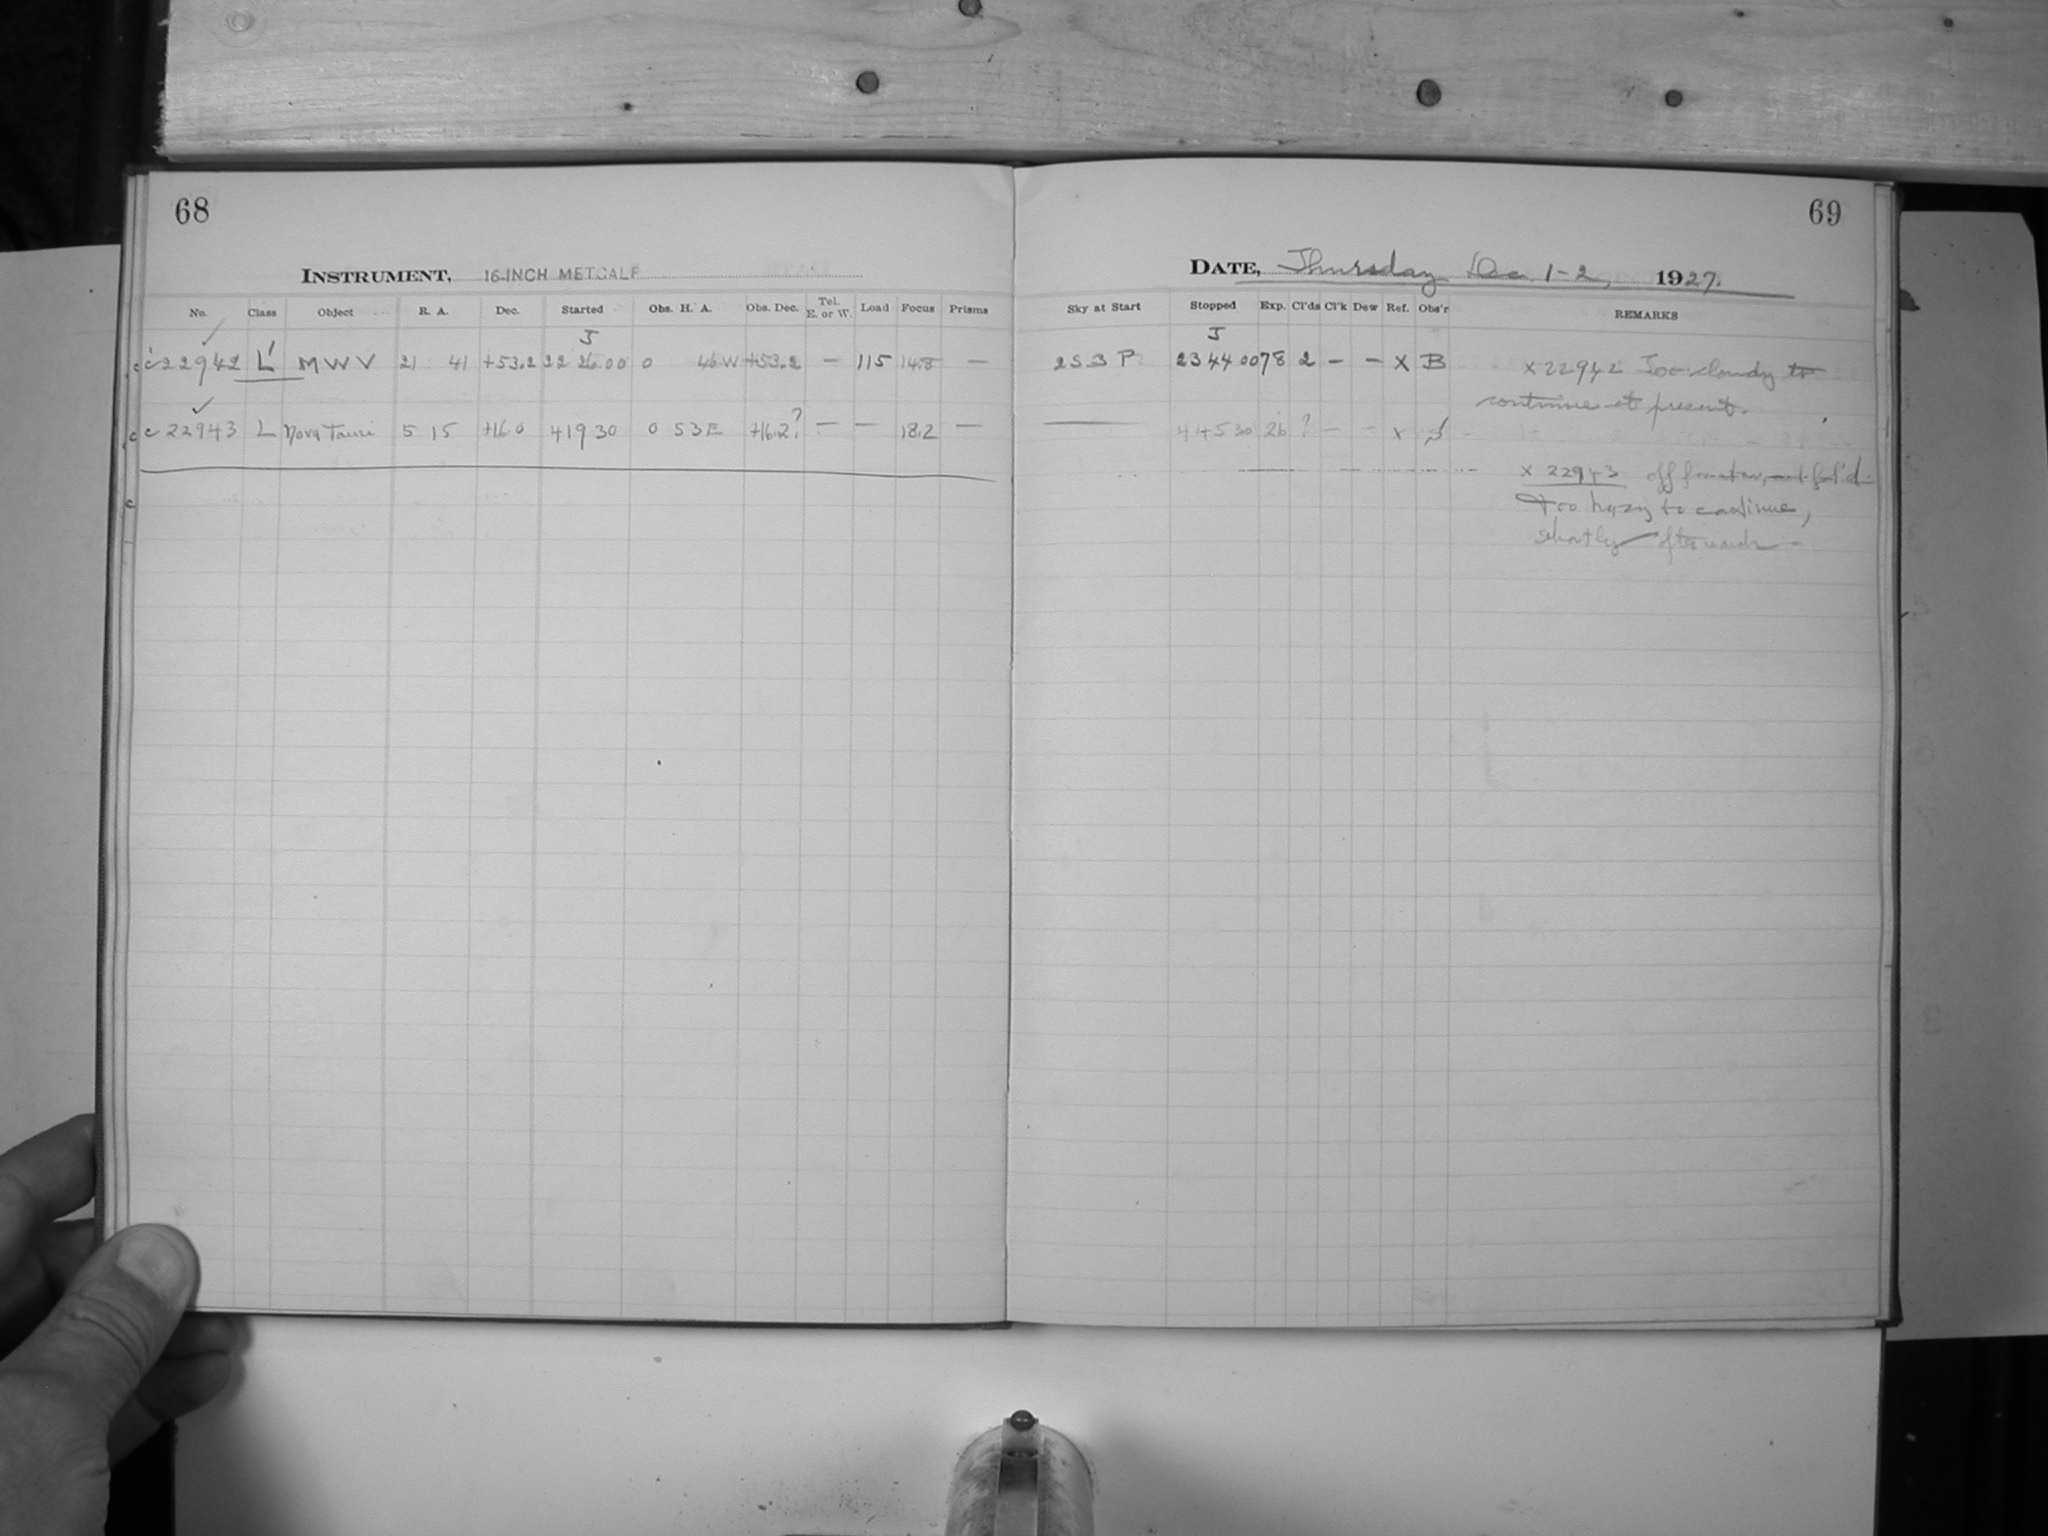 68
INSTRUMENT, 16-INCH METCALF
No. Class Object R. A. Dec. Started Obs. H. A. Obs. Dec. Tel. E. or W. Load Focus Prisms
J
c 22942 L' M W V 21 41 +53.2 22 26 00 0 46 W +53.2 — 115 14.8 —
c 22943 L Nova Tauri 5 15 +16.0 4 19 30 0 53 E +16.2? — — 18.2 —
69
DATE, Thursday Dec. 1-2, 1927.
Sky at Start Stopped Exp. Cl'ds Cl'k Dew Ref. Obs'r REMARKS
J
2 S 3 P 23 44 00 78 2 — — X B x 22942 Too cloudy to
continue at present.
4 45 30 26 ? — — x
x 22943 off
too hazy to continue,
shortly afterwards —